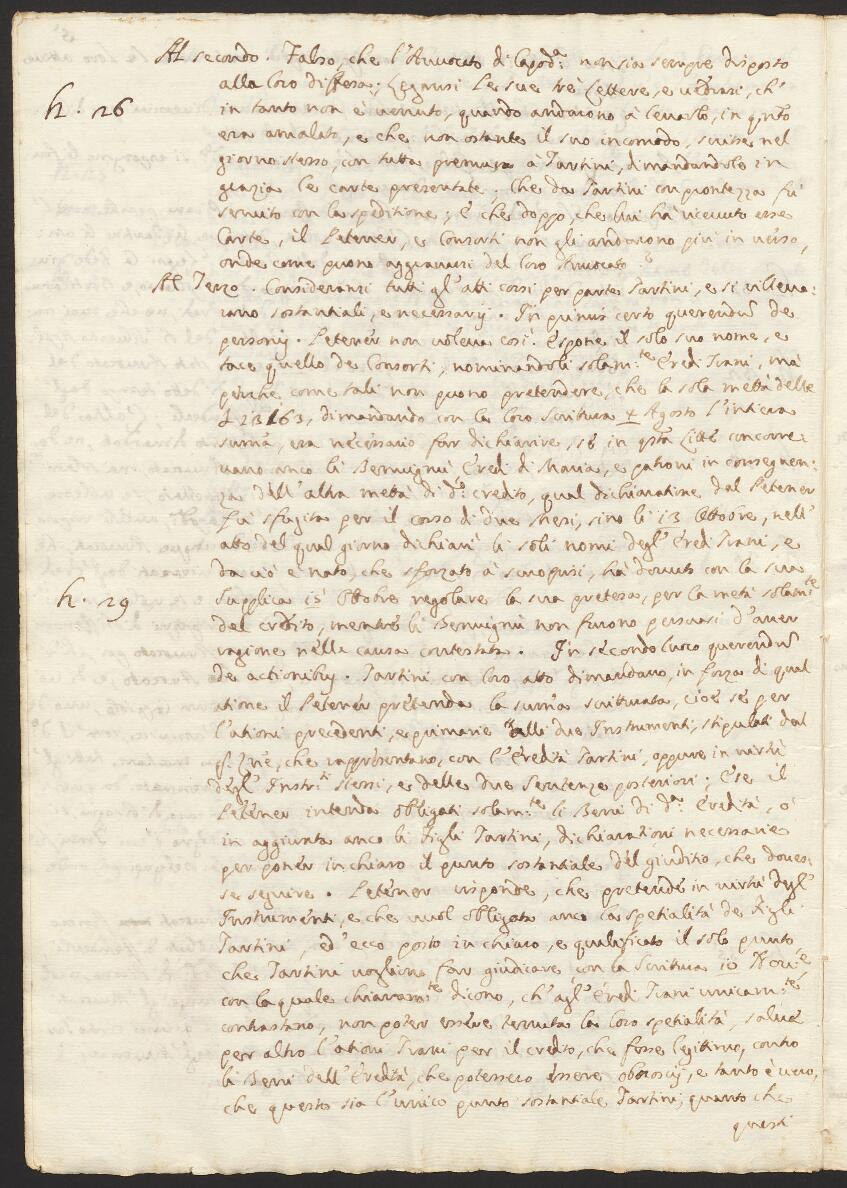 Al secondo. Falso, che l'Avvocato di Capod.a non sia sempre disposto
alla loro diffesa; Legansi le sue trè Lettere, e vedrassi, ch'
h. 26
in tanto non è venuto, quando andarono à levarlo, in q.nto
era amalato, e che non ostante il suo incomodo, scrisse nel
giorno stesso, con tutta premura à Tartini, dimandandole in
grazia le carte presentate. Che da Tartini con prontezza fù
servito con la speditione; E che doppo, che lui hà ricevuto esse
Carte, il Petener, e Consorti non gli andarono più in verso,
onde come puono aggravarsi del loro Avvocato?
Al Terzo. Consideransi tutti gl'atti corsi per parte Tartini, e si rilleva-
rano sostantiali, e necessarij. In primis certo querendum de
personis. Petener non voleva così. Espone il solo suo nome, e
tace quello de Consorti, nominandoli solam.te Eredi Trani, mà
perche come tali non puono pretendere, che la sola mettà delle
£ 23163, dimandando con la loro Scrittura Agosto l'intiera
summa, era necessario far dichiarire, se in q.sta Litte concorre-
vano anco li Bernugnù Eredi di Maria, e patroni in conseguen-
za dell'altra mettà di d.o credito, qual dichiaratine dal Petener
fù sfugita per il corso di due Mesi, sino li 13 Ottobre, nell'
atto del qual giorno dichiarì li soli nomi degl'Eredi Trani, e
da ciò è nato, che sforzato à scuoprirsi, hà dovuto con la sua
h. 29
Supplica 15 Ottobre regolare la sua pretesa, per la metà solam.te
del credito, mentre li Bernugnù non furono persuasi d'aver
ragione nella causa contestata. In secondo luoco querendum
de actionibus. Tartini con loro atto dimandano, in forza di qual
atione il Petener pretenda la summa scritturata, cioè se per
l'ationi precedenti, e primarie alli due Instrumenti, stipulati dal
che rappresentano, con l'Eredità Tartini, oppure in virtù
degl'Instr.ti stessi, e delle due Sentenze posteriori; E se il
Petener intenda obligati solam.te li Beni di d.a Eredità, ò
in aggiunta anco li Figli Tartini, dichiarationi necessarie
per poner in chiaro il punto sostantiale del giuditio, che doves-
se seguire. Petener risponde, che pretende in virtù degl'
Instrumenti, e che vuol obligata anco la spetialità de Figli
Tartini, ed'ecco posto in chiaro, e qualificato il solo punto,
che Tartini vogliono far giudicare con la Scrittura 10 Nov.e,
con la quale chiaram.te dicono, ch'agl'Eredi Trani unicam.te
contrastano, non poter essere tenuta la loro spetialità, salve
per altro l'ationi Trani per il credito, che fosse legitimo, contro
li Beni dell'Eredità, che potessero essere obnoxij, e tanto è vero,
che questo sia l'unico punto sostantiale Tartini, quanto che
questi